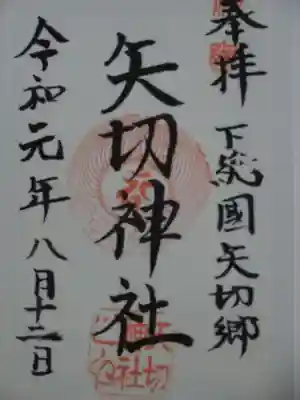 奉拝
下総國矢切郷
矢切神社
令和元年八月十二日